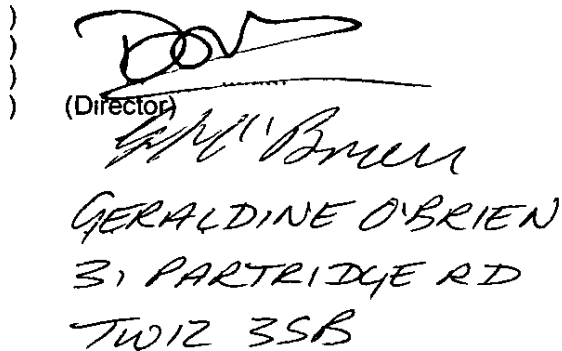 )
)
)
) (Director)
GERALDINE O'BRIEN
31 PARTRIDGE RD
TW12 3SB